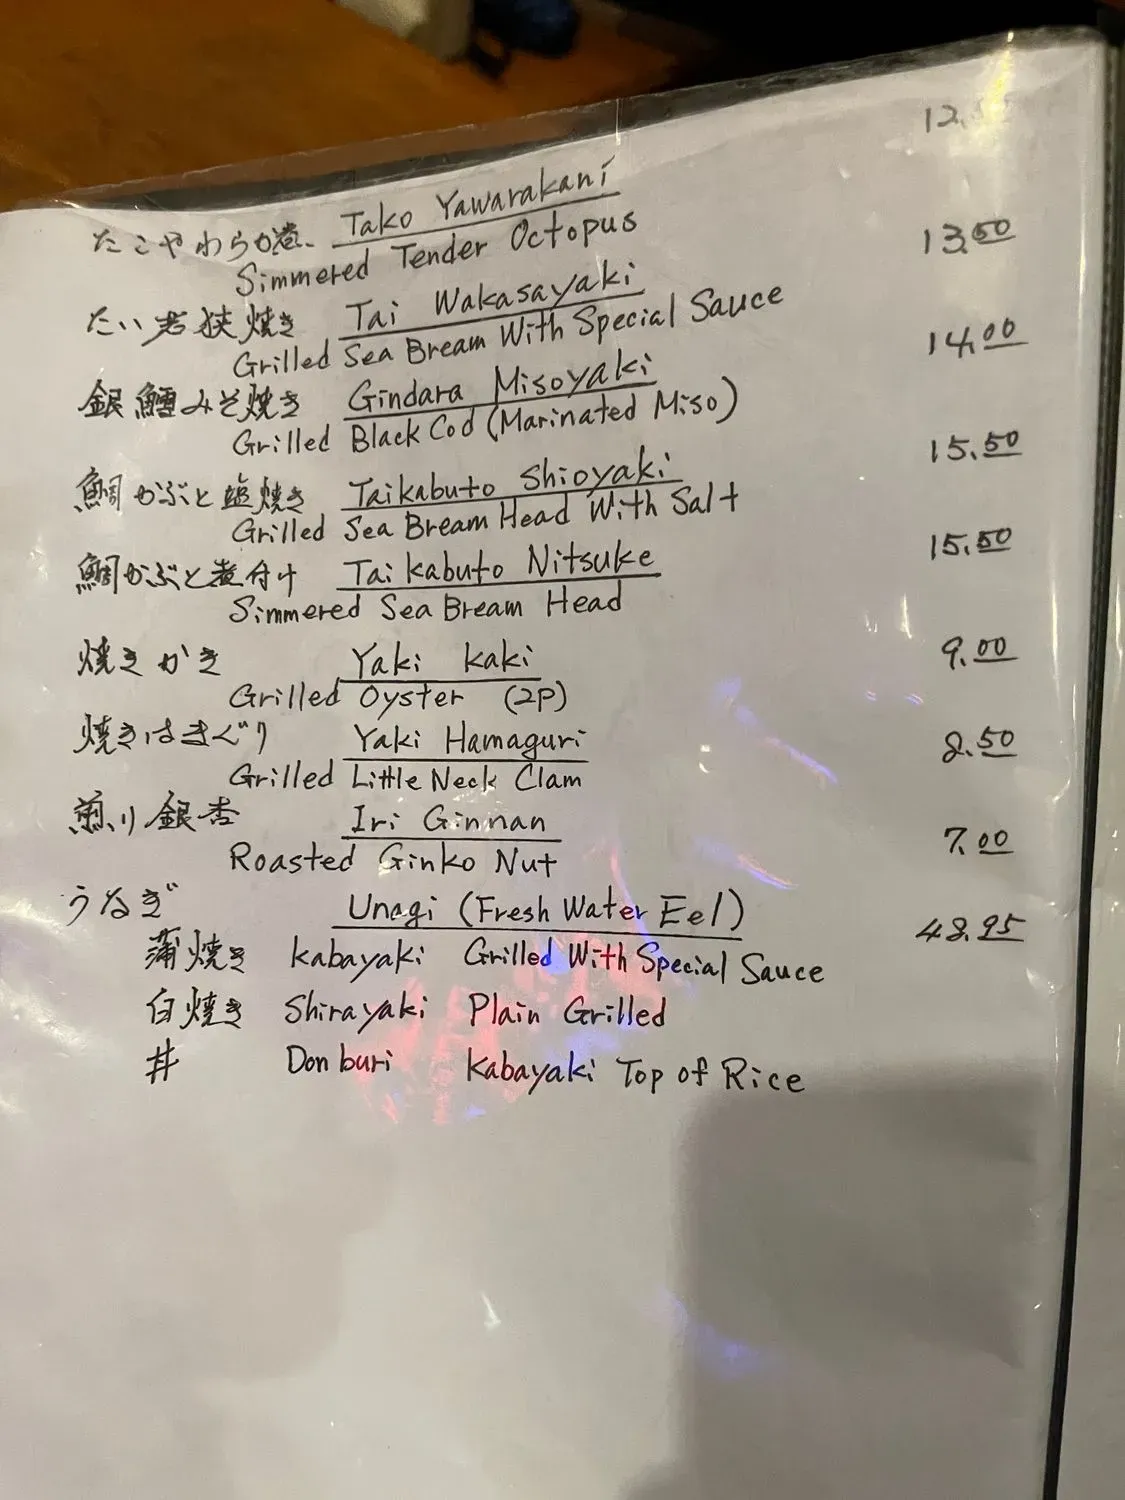 たこやわらか煮 Tako Yawarakani 12.
Simmered Tender Octopus
たい若狭焼き Tai Wakasayaki 13.50
Grilled Sea Bream With Special Sauce
銀鱈みそ焼き Gindara Misoyaki 14.00
Grilled Black Cod (Marinated Miso)
鯛かぶと塩焼き Taikabuto Shioyaki 15.50
Grilled Sea Bream Head With Salt
鯛かぶと煮付け Taikabuto Nitsuke 15.50
Simmered Sea Bream Head
焼きかき Yaki kaki 9.00
Grilled Oyster (2P)
焼きはまぐり Yaki Hamaguri 8.50
Grilled Little Neck Clam
煎り銀杏 Iri Ginnan 7.00
Roasted Ginko Nut
うなぎ Unagi (Fresh Water Eel) 48.95
蒲焼き kabayaki Grilled With Special Sauce
白焼き Shirayaki Plain Grilled
丼 Donburi Kabayaki Top of Rice